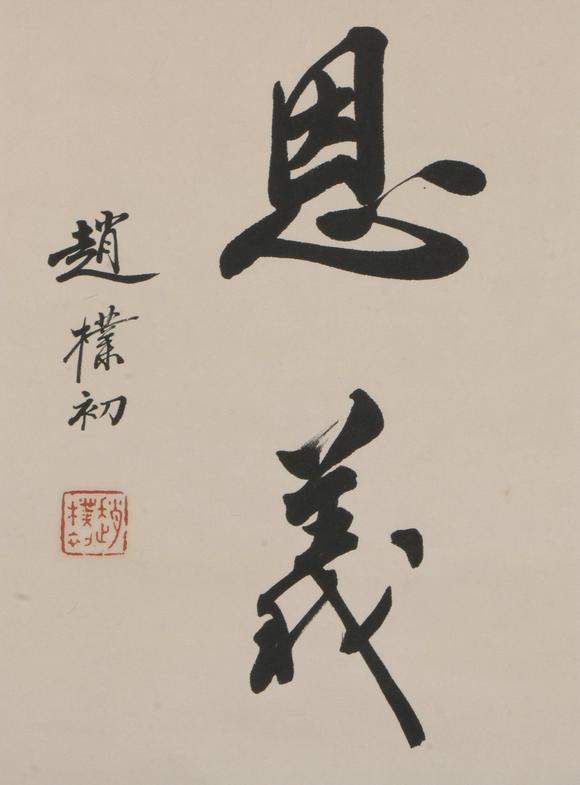 恩義
趙樸初
趙樸初